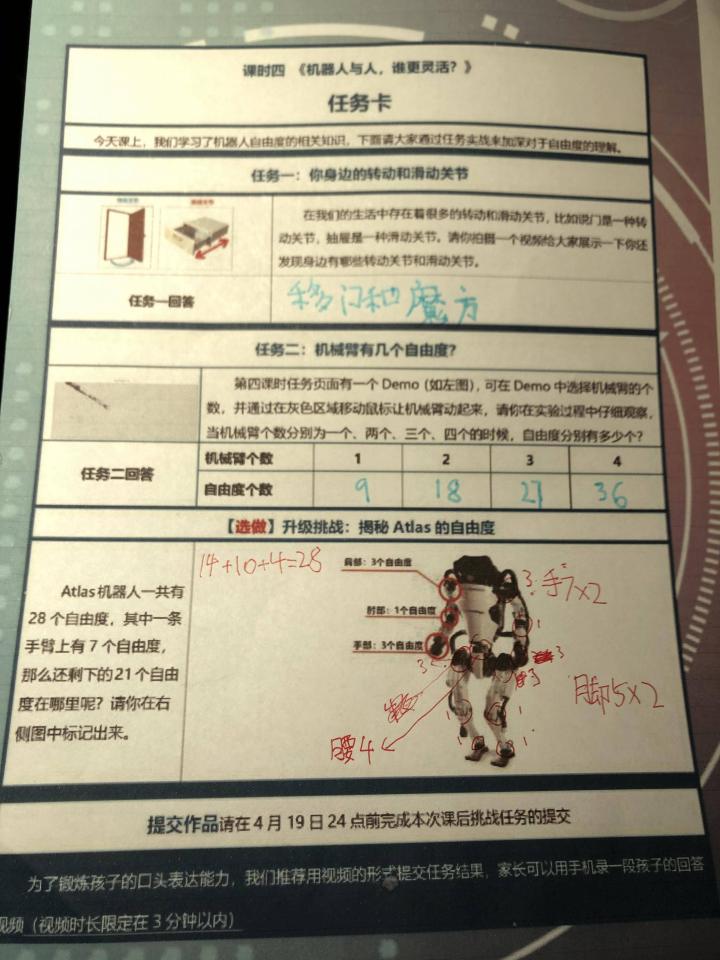 课时四 《机器人与人，谁更灵活？》
任务卡
今天课上，我们学习了机器人自由度的相关知识，下面请大家通过任务实战来加深对于自由度的理解。
任务一：你身边的转动和滑动关节
在我们的生活中存在着很多的转动和滑动关节，比如说门是一种转
动关节，抽屉是一种滑动关节。请你拍摄一个视频给大家展示一下你还
发现身边有哪些转动关节和滑动关节。
任务一回答
移门和魔方
任务二：机械臂有几个自由度？
第四课时任务页面有一个 Demo（如左图），可在 Demo 中选择机械臂的个
数，并通过在灰色区域移动鼠标让机械臂动起来，请你在实验过程中仔细观察，
当机械臂个数分别为一个、两个、三个、四个的时候，自由度分别有多少个？
任务二回答
机械臂个数 1 2 3 4
自由度个数 9 18 27 36
【选做】升级挑战：揭秘 Atlas 的自由度
Atlas 机器人一共有
28 个自由度，其中一条
手臂上有 7 个自由度，
那么还剩下的 21 个自由
度在哪里呢？请你在右
侧图中标记出来。
14+10+4=28
肩部：3个自由度
肘部：1个自由度
手部：3个自由度
3
手7×2
1
3
3
3
脚5×2
腰4
1
1
1
1
提交作品请在 4 月 19 日 24 点前完成本次课后挑战任务的提交
为了锻炼孩子的口头表达能力，我们推荐用视频的形式提交任务结果，家长可以用手机录一段孩子的回答
视频（视频时长限定在 3 分钟以内）